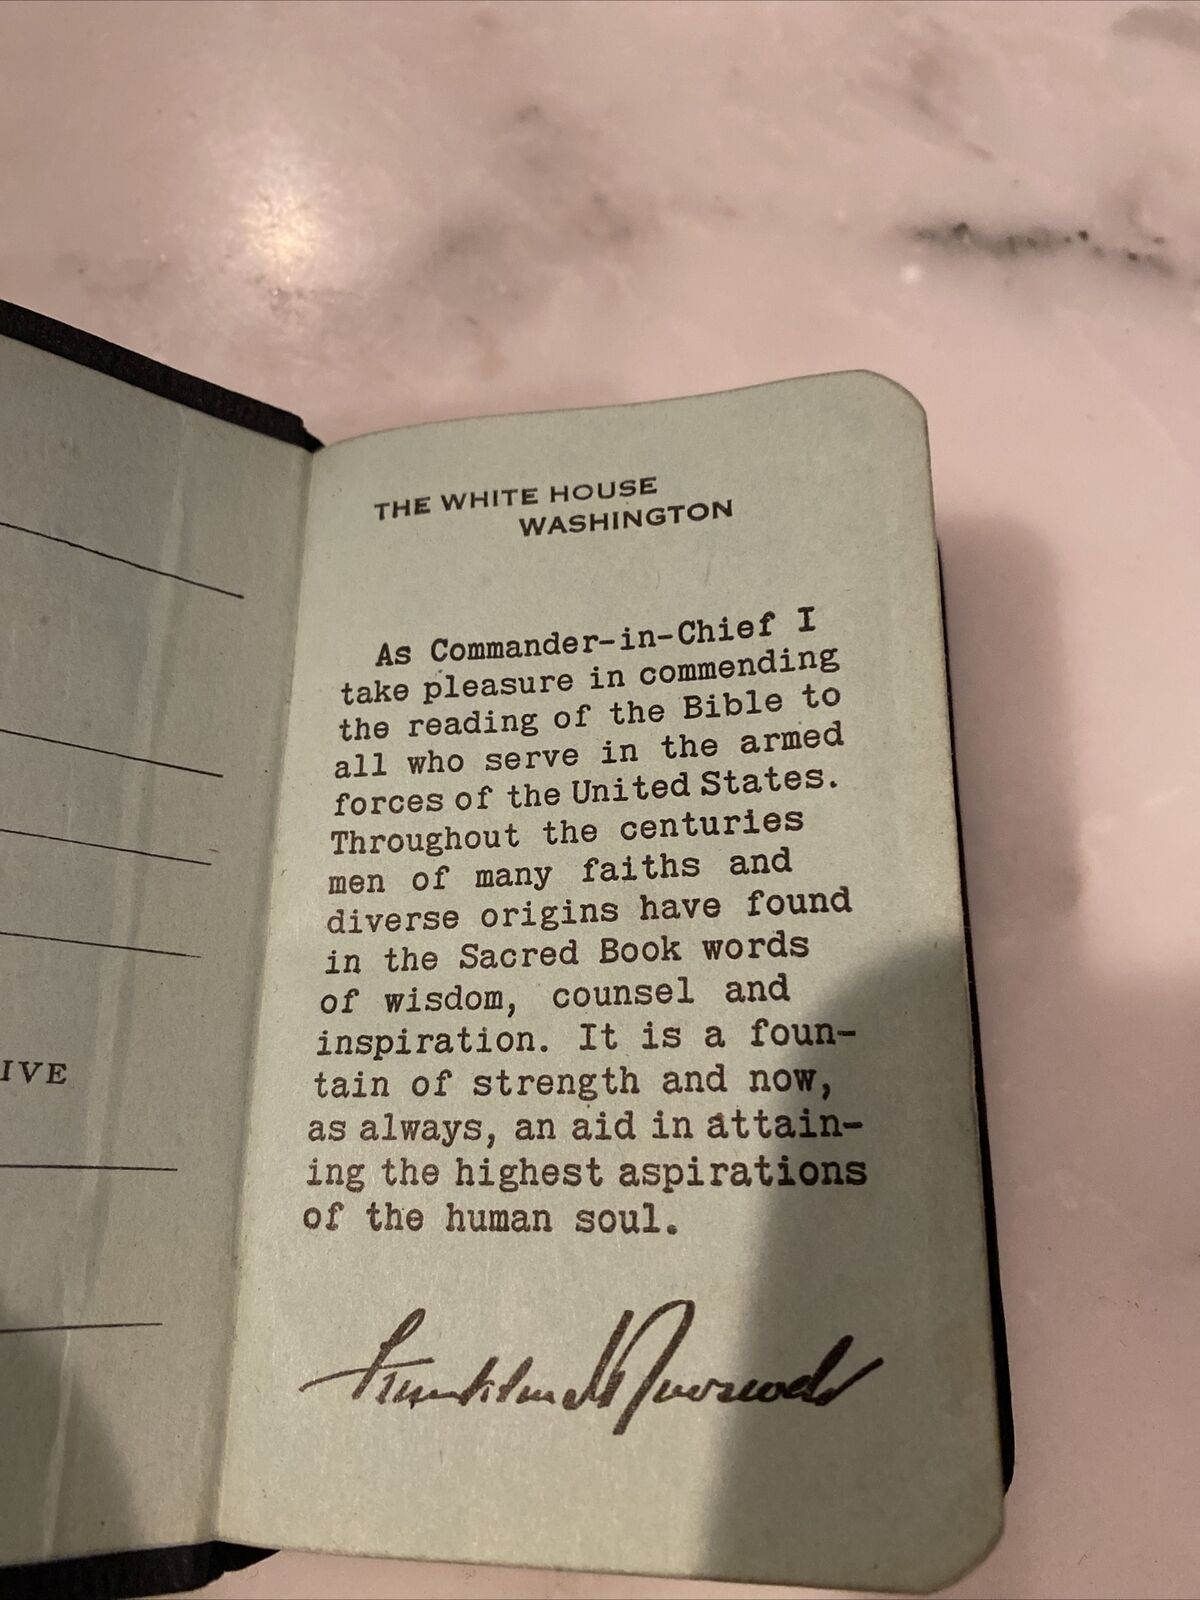 IVE
THE WHITE HOUSE
WASHINGTON
As Commander-in-Chief I
take pleasure in commending
the reading of the Bible to
all who serve in the armed
forces of the United States.
Throughout the centuries
men of many faiths and
diverse origins have found
in the Sacred Book words
of wisdom, counsel and
inspiration. It is a foun-
tain of strength and now,
as always, an aid in attain-
ing the highest aspirations
of the human soul.
Franklin D Roosevelt